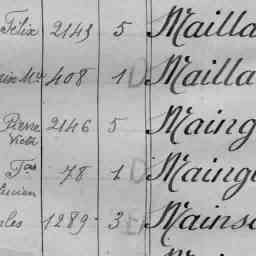 Félix 2143 5 Mailla
408 1 D Mailla
Pierre 2146 5 Maing
Victor
Fois 78 1 D Maing
Lucien
ales 1289 3 E Mains